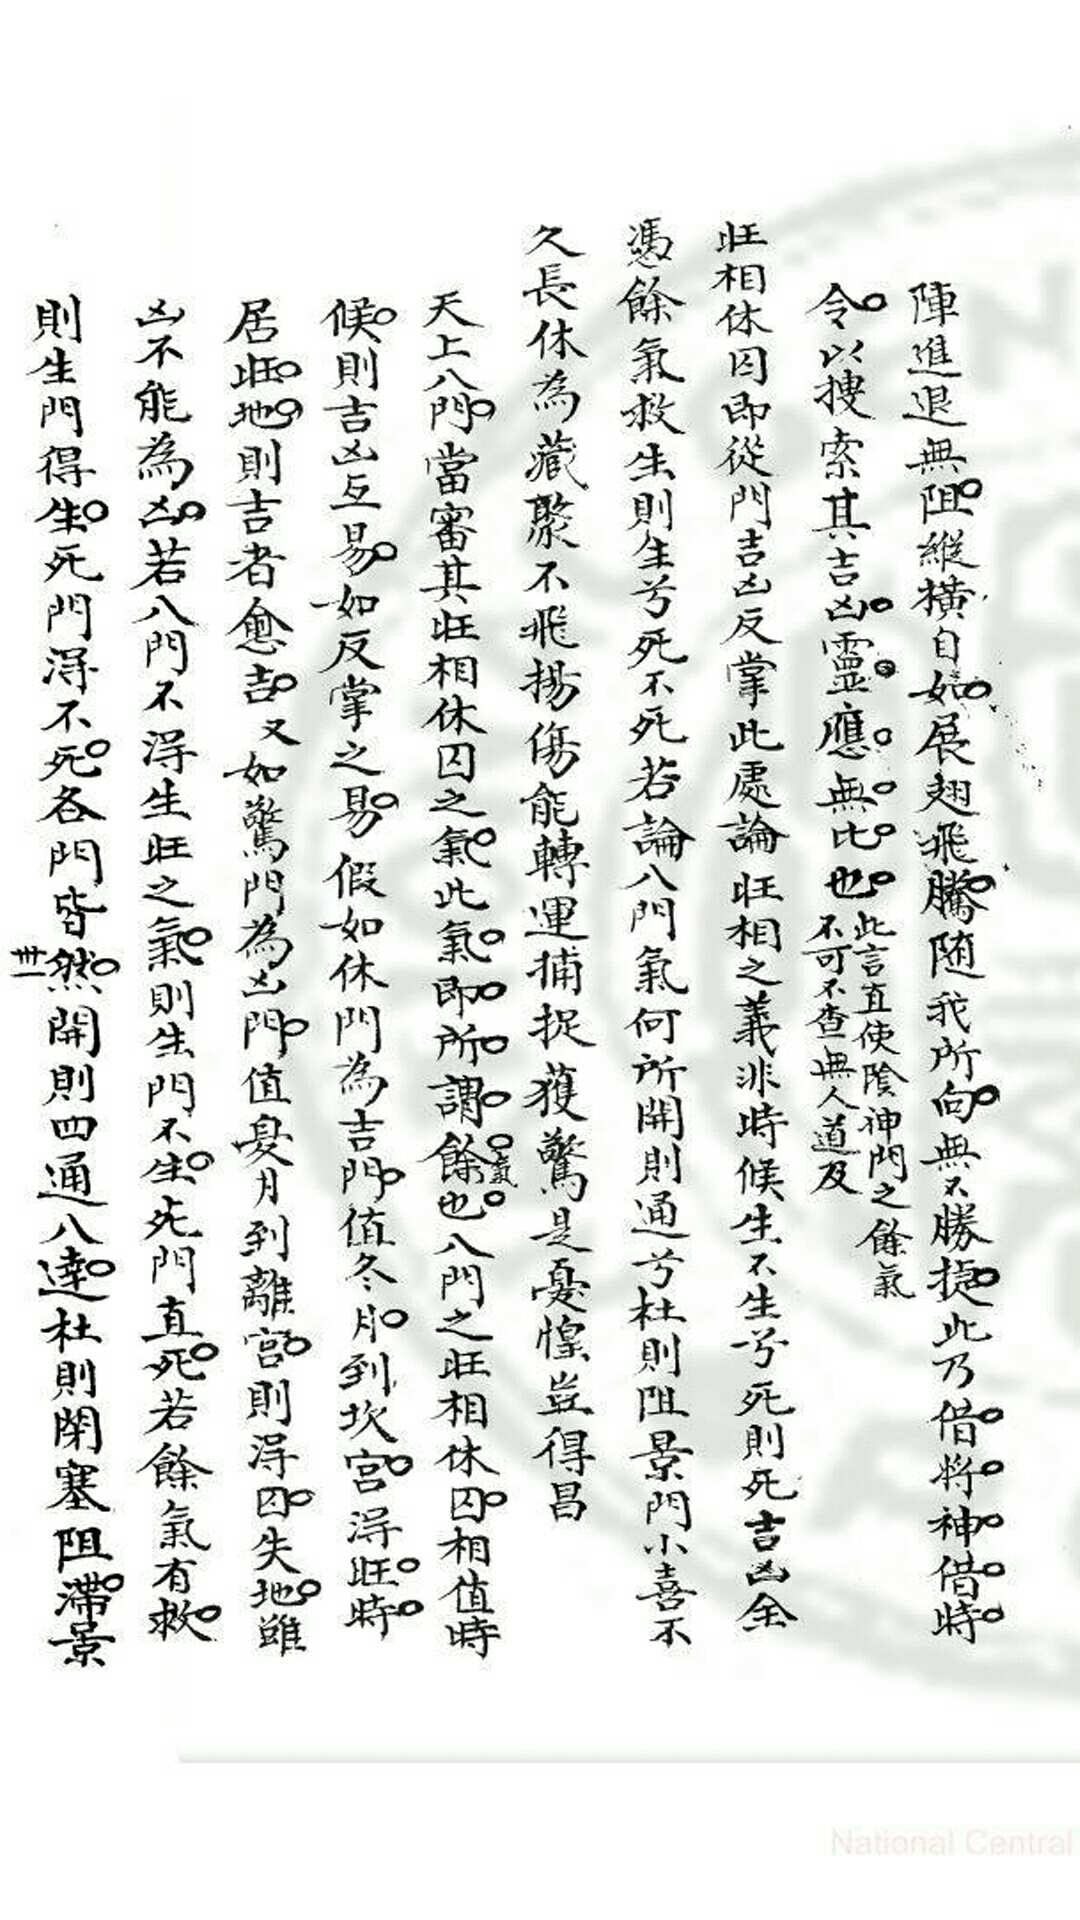 陣進退無阻縱橫自如展翅飛騰随我所向無不勝捷此乃借将神借時
令以搜索其吉凶靈應無比也此言直使陰神門之餘氣不可不查無人道及
旺相休囚即從門吉凶反掌此處論旺相之義非時候生不生兮死則死吉凶全
憑餘氣救生則生兮死不死若論八門氣何所開則通兮杜則阻景門小喜不
久長休為藏聚不飛揚傷能轉運捕捉獲驚是憂惶豈得昌
天上八門當審其旺相休囚之氣此氣即所謂餘氣也八門之旺相休囚相值時
候則吉凶互易如反掌之易假如休門為吉門值冬月到坎宮得旺時
居旺地則吉者愈吉又如驚門為凶門值夏月到離宮則得囚失地雖
凶不能為凶若八門不得生旺之氣則生門不生死門直死若餘氣有救
則生門得生死門得不死各門皆然開則四通八達杜則閉塞阻滯景
卅一
National Central